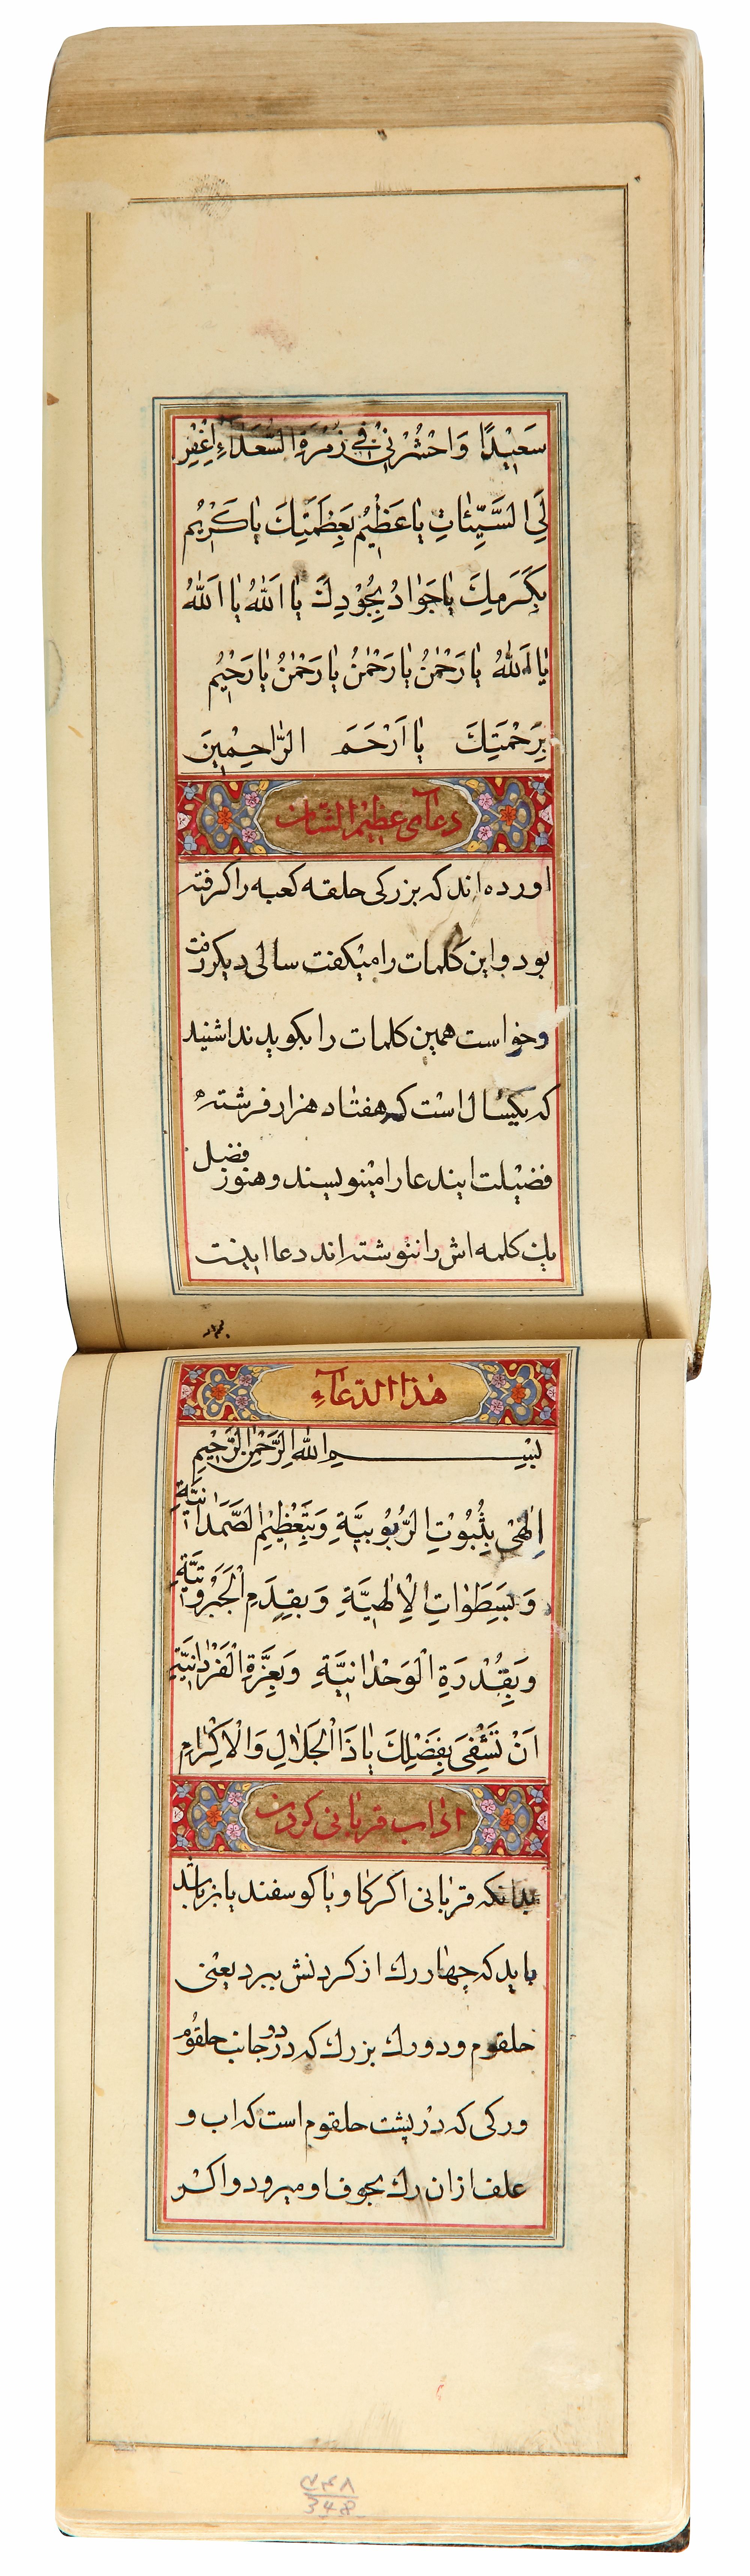 سَعِيْدًا وَاحْشُرْنِيْ فِي زُمْرَةِ السُّعَدَاءِ اِغْفِرْ
لِيَ السَّيِّئٰاتِ يٰا عَظِيْمُ بِعَظَمَتِكَ يٰا كَرِيْمُ
بِكَرَمِكَ يٰا جَوٰادُ بِجُوْدِكَ يٰا اَللّٰهُ يٰا اَللّٰهُ
يٰا اَللّٰهُ يٰا رَحْمٰنُ يٰا رَحْمٰنُ يٰا رَحْمٰنُ يٰا رَحِيْمُ
بِرَحْمَتِكَ يٰا اَرْحَمَ الرّٰاحِمِيْنَ
دعاٰى عظيم الشان
اورده اند كه بزركى حلقه كعبه را كرفته
بود و اين كلمات را ميكفت سالى ديكر رفت
وخواست همين كلمات را بكويد ندا شنيد
كه يكسال است كه هفتاد هزار فرشته
فضيلت ايندعا را مينويسند و هنوز فضل
يك كلمه اش را ننوشته اند دعا اينست
هٰذا الدّعاٰءِ
بِسْمِ اللهِ الرَّحْمٰنِ الرَّحِيْمِ
اِلٰهِيْ بِثُبُوْتِ الرُّبُوْبِيَّةِ وَبِتَعْظِيْمِ الصَّمَدٰانِيَّةِ
وَبِسَطَوٰاتِ الْاِلٰهِيَّةِ وَبِقِدَمِ الْجَبَرُوْتِيَّةِ
وَبِقُدْرَةِ الْوَحْدٰانِيَّةِ وَبِعِزَّةِ الْفَرْدٰانِيَّةِ
اَنْ تَشْفِىَ بِفَضْلِكَ يٰا ذَا الْجَلٰالِ وَالْاِكْرٰامِ
اداب قربانى كردن
بدانكه قربانى اكر كاو يا كوسفند يا بز باشد
بايد كه چهار رك از كردنش ببرد يعنى
حلقوم و دو رك بزرك كه در دو جانب حلقوم
و ركى كه در پشت حلقوم است كه اب و
علف از ان رك بجوف او ميرود و اكثر
۳۴۸
348